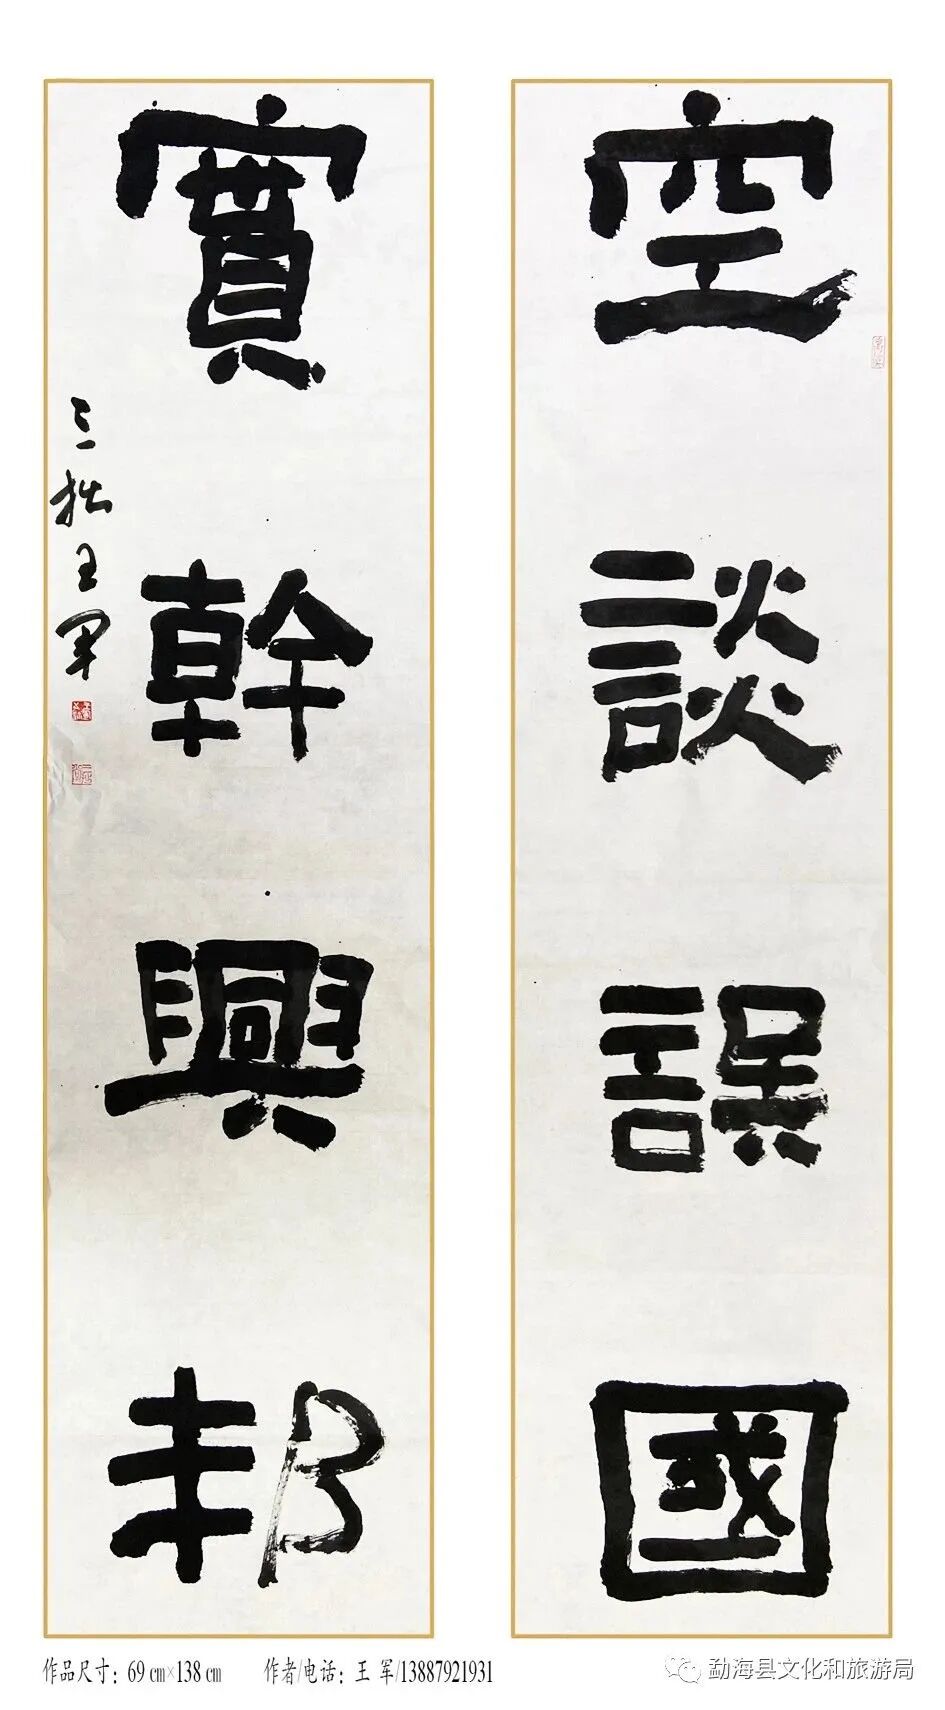 空談誤國
實幹興邦
三拙王军
作品尺寸：69㎝×138㎝ 作者/电话：王 军/13887921931
勐海县文化和旅游局